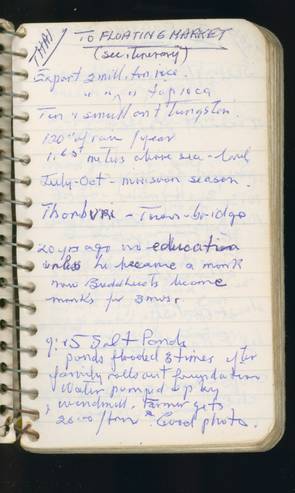 THAI
TO FLOATING MARKET
(see itinerary)
Export 2 mill. ton rice.
" " " " tapioca
Tin & small amt tungsten.
120" of rain / year
meters above sea-level
July-Oct - monsoon season.
Thonburi - Twin-bridge
20 yrs ago no education
unless he became a monk
now Buddhists become
monks for 3 mos.
9:15 Salt Ponds
ponds flooded 3 times after
family rolls out foundation
Water pumped up by
windmill. Farmer gets
/ton. Good photo.